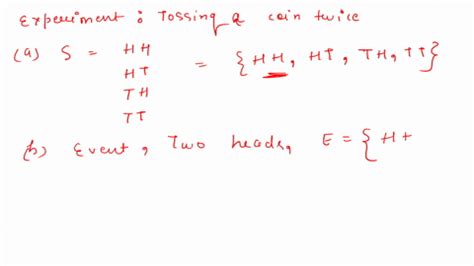 Experiment : Tossing a coin twice
(a) S = HH = {HH, HT, TH, TT}
HT
TH
TT
(b) Event, Two heads, E = {H+